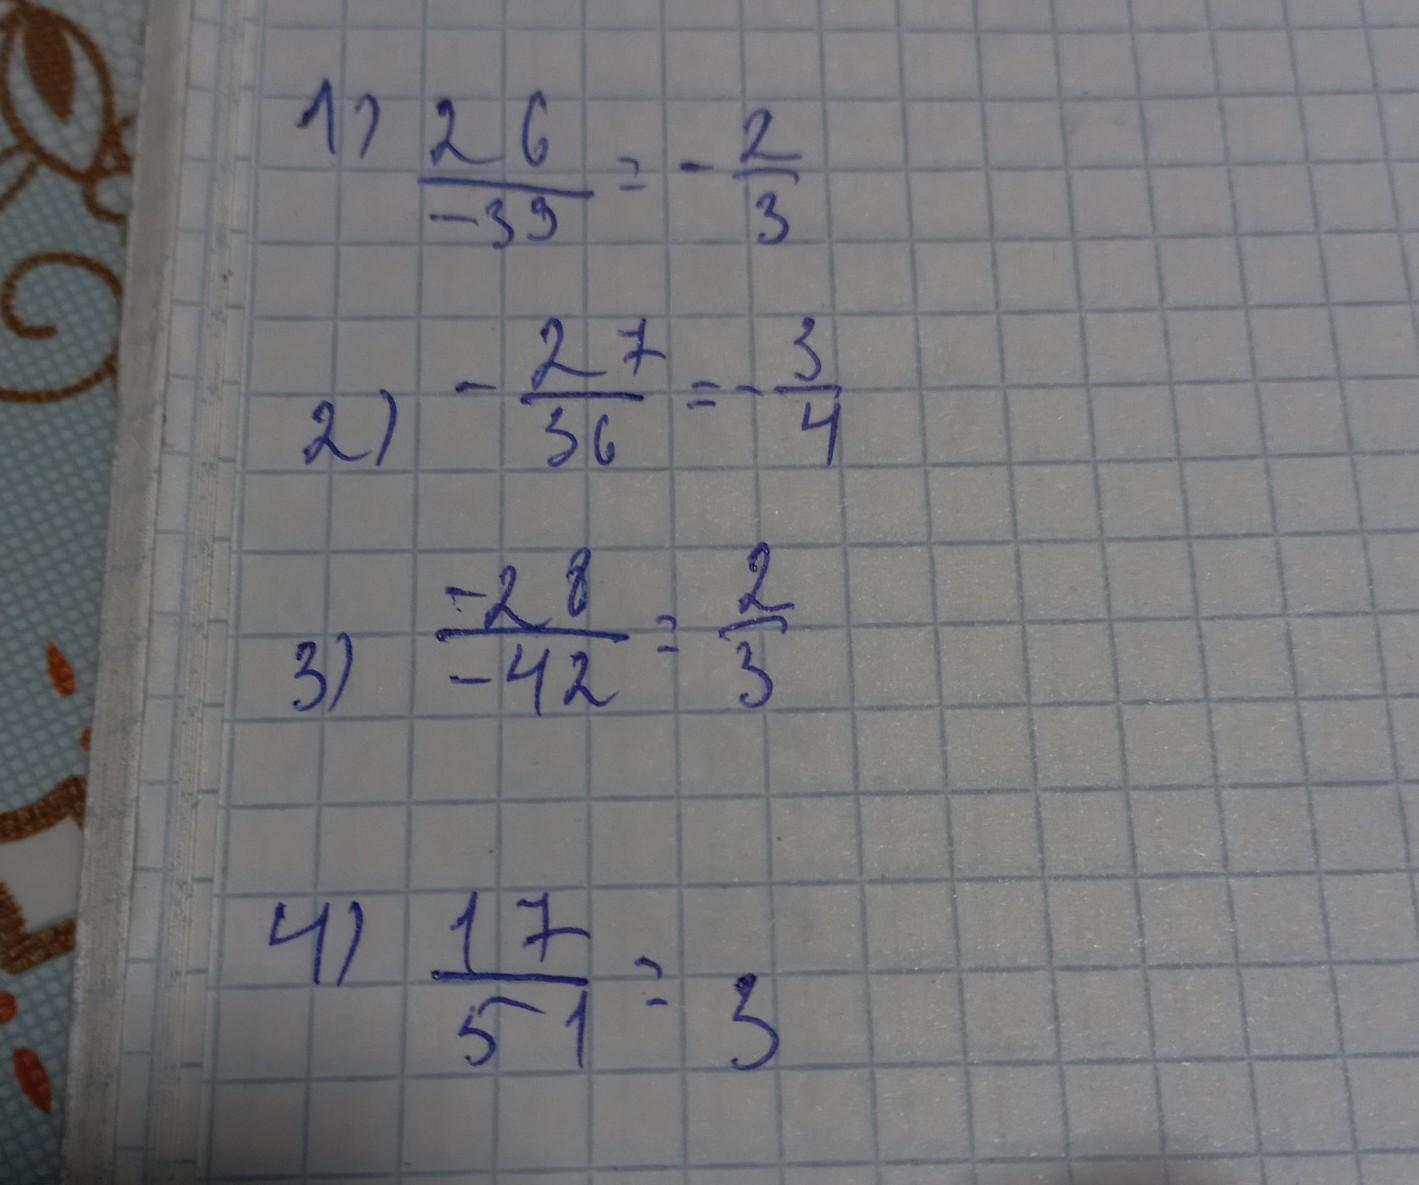 1) 26/-39 = - 2/3
2) - 27/36 = - 3/4
3) -28/-42 = 2/3
4) 17/51 = 3